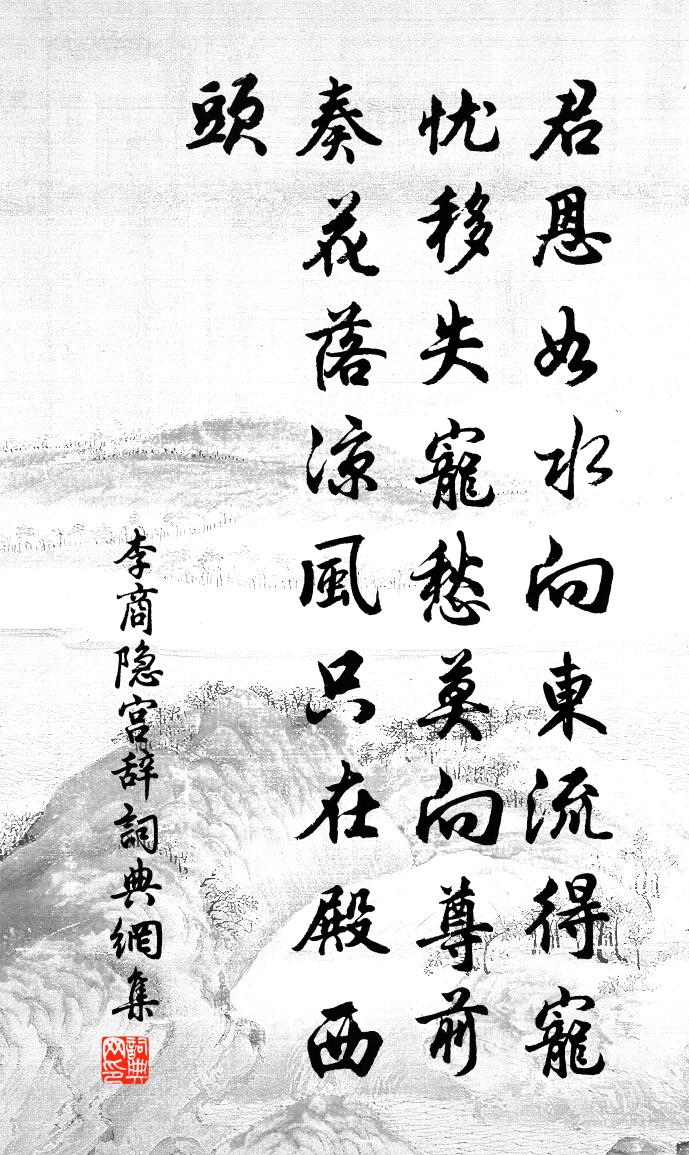 君恩如水向東流得寵
忧移失寵愁莫向尊前
奏花落凉風只在殿西
頭
李商隐宫辞詞典網集
詞典
网印